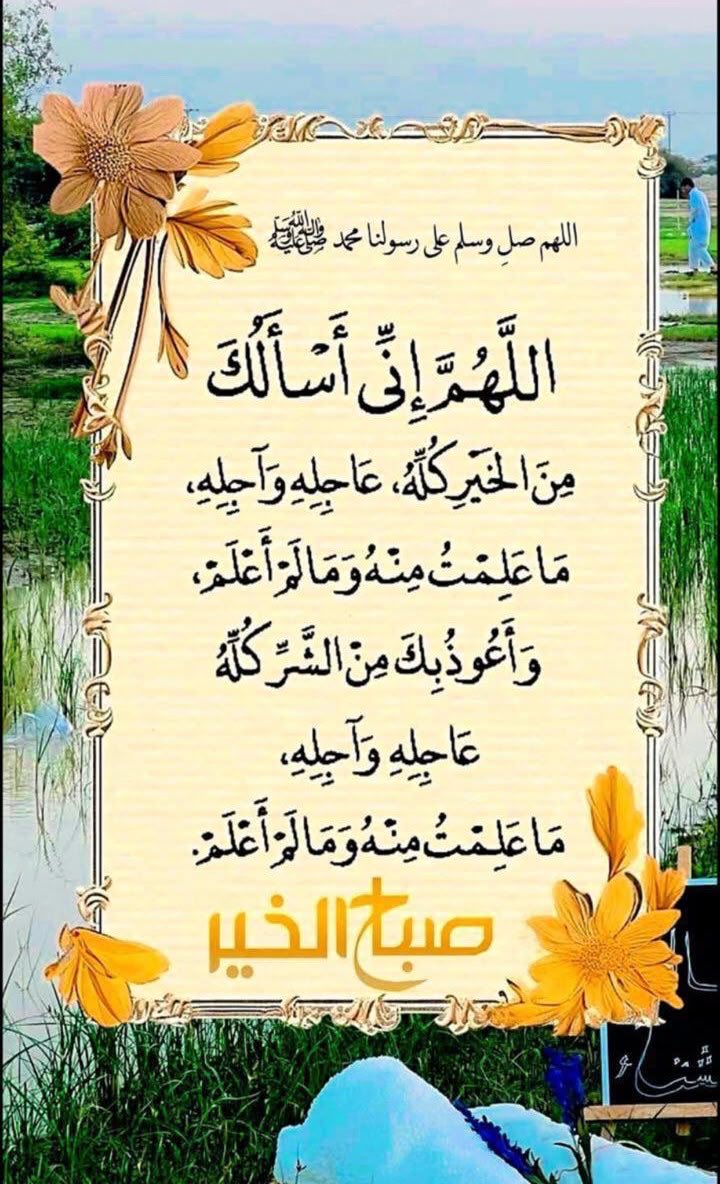 اللهم صلِ وسلم على رسولنا محمد ﷺ
اللَّهُمَّ إِنِّي أَسْأَلُكَ
مِنَ الْخَيْرِ كُلِّهُ، عَاجِلِهِ وَآجِلِهِ،
مَا عَلِمْتُ مِنْهُ وَمَا لَمْ أَعْلَمْ،
وَأَعُوذُ بِكَ مِنَ الشَّرِّ كُلِّهُ
عَاجِلِهِ وَآجِلِهِ،
مَا عَلِمْتُ مِنْهُ وَمَا لَمْ أَعْلَمْ.
صباح الخير